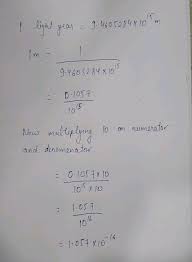 1 light year = 9.4605284 × 10¹⁵ m
1m = 1
9.4605284 × 10¹⁵
= 0.1057
10¹⁵
Now multiplying 10 on numerator
and denominator
= 0.1057 × 10
10¹⁵ × 10
= 1.057
10¹⁶
= 1.057 × 10⁻¹⁶